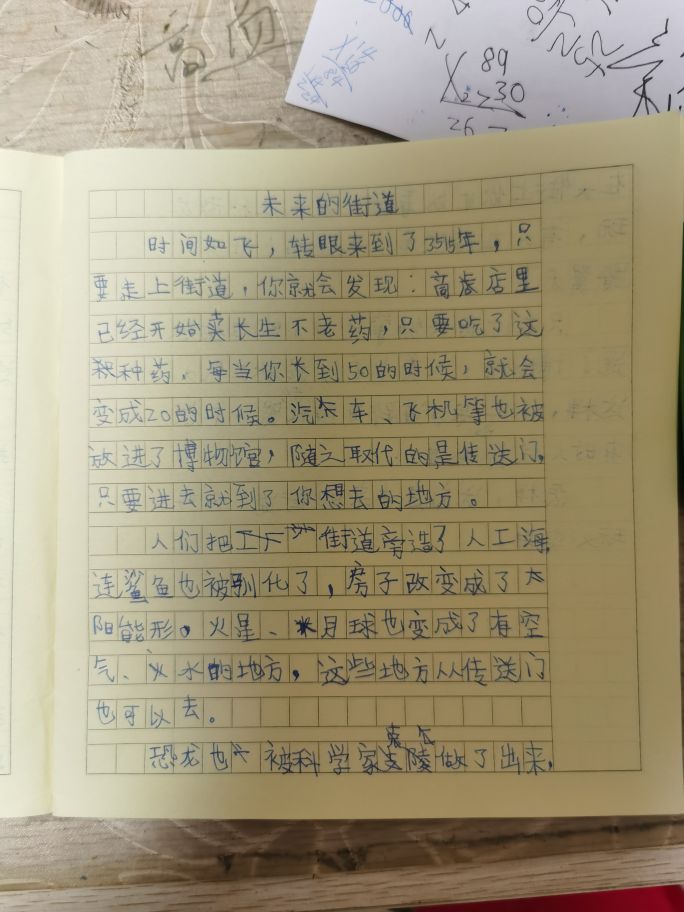 高血
2000
89
X
30
26
未来的街道
时间如飞，转眼来到了3515年，只
要走上街道，你就会发现：商店里
已经开始卖长生不老药，只要吃了这
种药，每当你长到50的时候，就会
变成20的时候。汽车、飞机等也被
放进了博物馆，随之取代的是传送门，
只要进去就到了你想去的地方。
人们把 街道旁造了人工海，
连鲨鱼也被驯化了，房子改变成了太
阳能形。火星、月球也变成了有空
气、水的地方，这些地方从传送门
也可以去。
恐龙也被科学家 做了出来，